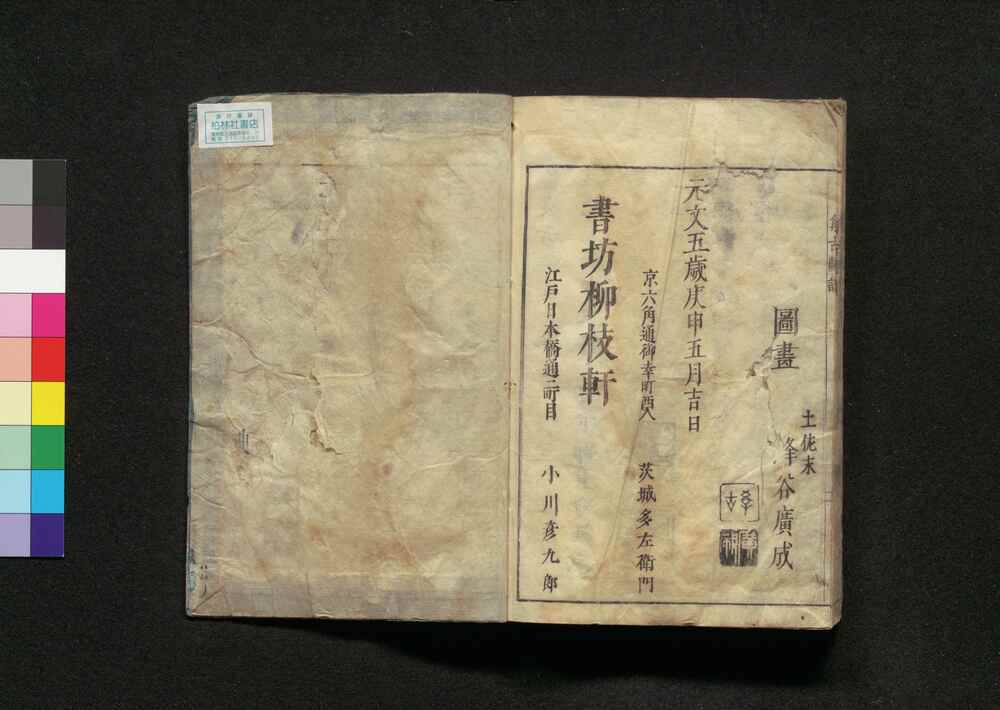 圖畫
土佐末
峰谷廣成
元文五歳庚申五月吉日
京六角通御幸町西入
茨城多左衛門
書坊柳枝軒
江戸日本橋通三町目
小川彦九郎
柏林社書店